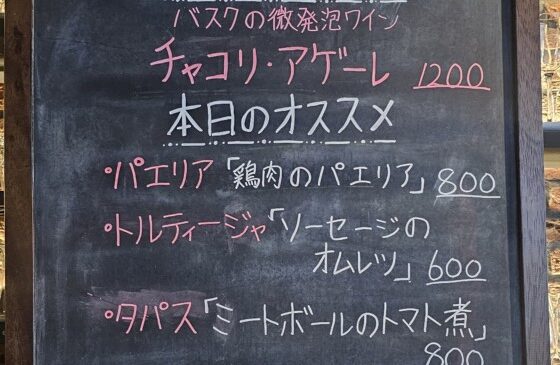 バスクの微発泡ワイン
チャコリ・アゲーレ 1200
本日のオススメ
・パエリア「鶏肉のパエリア」800
・トルティージャ「ソーセージの
オムレツ」600
・タパス「ミートボールのトマト煮」
800